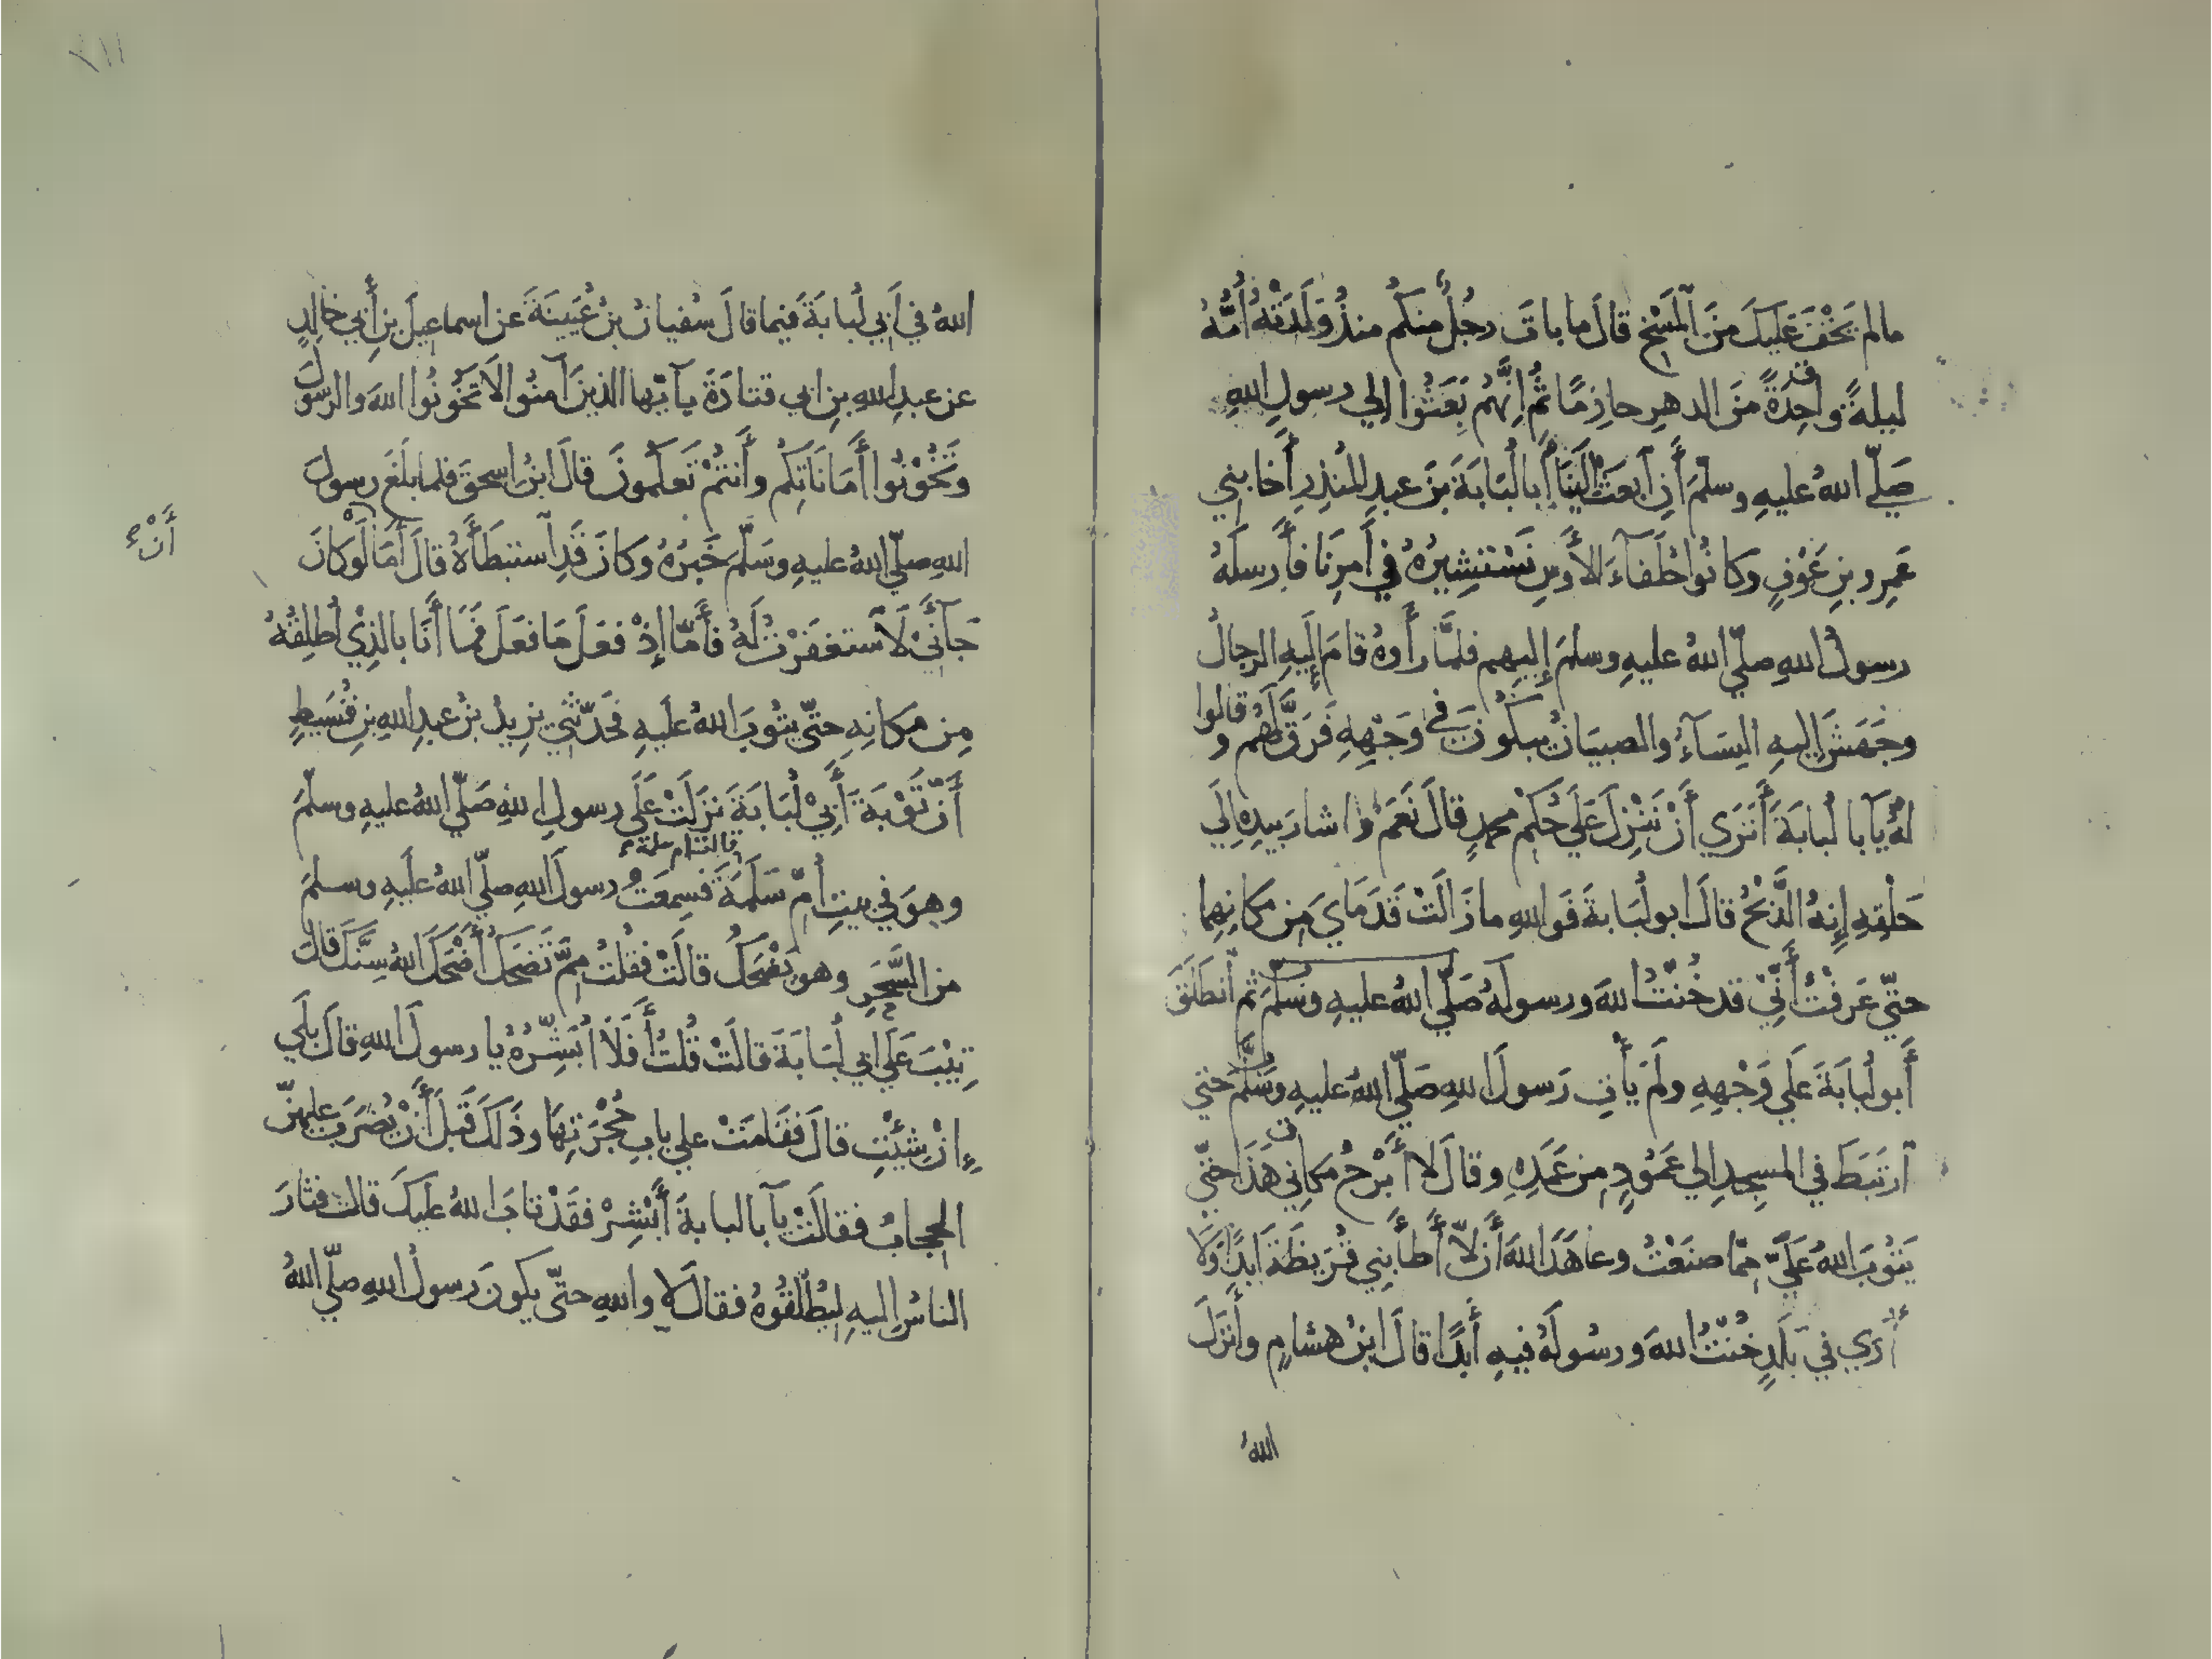 مالم يَخْفَ عَلَيكَ مِنَ المَسْخِ قالَ ما باتَ رجُلٌ منكم منذُ وَلَدَتْهُ أُمُّهُ
ليلةً واحِدَةً مِنَ الدهرِ حازِمًا ثُمَّ اِنَّهُم بَعَثُوا الي رسولِ اللهِ
صَلّي اللهُ عليهِ وسلّمَ أَنِ ابعَثْ اِلَيْنَا أَبا لُبَابَةَ بنَ عبدِ المُنذِرِ أَخا بني
عَمرِو بنِ عَوْفٍ وكانُوا حُلَفآءَ الأَوسِ نَسْتَشِيرُهُ في أَمرِنَا فأَرسلَهُ
رسولُ اللهِ صلّي اللهُ عليهِ وسلمَ إِليهِم فلمَّا رأَوهُ قامَ إِلَيهِ الرجالُ
وجَهَشَ إِليهِ النِسَآءُ والصبيَانُ يبكُونَ في وَجْهِهِ فَرَقَّ لَهُم وقالوا
لهُ يآبا لُبابةَ أَتَرَي أَنْ نَنْزِلَ عَلَي حُكْمِ محمدٍ قالَ نَعَمْ وأشارَ بيدِهِ إِلَي
حَلْقِهِ إِنهُ الذَّبْحُ قالَ ابو لُبَابةَ فَواللهِ ما زَالَتْ قَدَمَايَ مِن مكانِهِما
حتّي عَرفْتُ أَنّيْ قد خُنْتُ اللهَ ورسولَهُ صَلّي اللهُ عليهِ وسَلّمَ ثم انطَلَقَ
أَبو لُبابَةَ عَلي وَجْهِهِ ولَمْ يأْتِ رَسولَ اللهِ صَلّي اللهُ عليهِ وسَلّمَ حتي
ارتَبَطَ في المسجدِ الي عَمُودٍ مِن عَمَدِهِ وقالَ لا أَبْرَحُ مكاني هَذَا حتّي
يَتُوبَ اللهُ عَلَيَّ مِمّا صنَعْتُ وعاهَدَ اللهَ أَن لاّ أَطأَ بني قُرَيظَةَ أبدًا وَلا
أُرَي في بَلَدٍ خُنْتُ اللهَ ورسُولَهُ فيهِ أَبدًا قالَ ابنُ هشامٍ وأَنزَلَ
اللهُ
٢١١
اللهُ في أَبي لُبابَةَ فيما قالَ سُفيانُ بنُ عُيَينَةَ عن اسماعيلَ بنِ أَبي خالدٍ
عن عبدِ اللهِ بنِ ابي قتادَةَ يآ أيّها الذينَ آمنُوا لا تَخُونُوا اللهَ والرّسولَ
وتَخُونُوا أَمَانَاتِكُم وأَنتُمْ تَعلَمونَ قالَ ابنُ اسحقَ فلما بلَغَ رسولَ
اللهِ صلّي اللهُ عليهِ وسَلّمَ خَبَرُهُ وكانَ قَدِ استبطَأَهُ قالَ أَمَا لَوْ كانَ
أَنْ
جَآءَنِي لَاستغفَرْتُ لَهُ فأَمّا إِذْ فعَلَ مَا فعَلَ فَمَا أَنَا بالذِيْ أُطلِقُهُ
مِن مكانِهِ حتّي يتُوبَ اللهُ عليهِ فحَدّثَني يزيدُ بنُ عبدِ اللهِ بنِ قُسَيطٍ
أَنّ تَوْبَةَ أَبِيْ لُبَابَةَ نزَلَتْ عَلَي رسولِ اللهِ صَلّي اللهُ عليهِ وسلّمَ
وهوَ في بيتِ أُمّ سَلَمَةَ قالت ام سلمة فسِمعَتُ رسولَ اللهِ صلّي اللهُ علَيهِ وسلمَ
من السَّحَرِ وهو يَضْحَكُ قالَتْ فقُلتُ مِمَّ تَضحَكُ أَضْحَكَ اللهُ سِنَّكَ قالَ
تِيْبَ عَلَي ابي لُبَابَةَ قالَتْ قُلتُ أَفَلَا أُبَشِّرُهُ يا رسولَ اللهِ قالَ بلَي
إِنْ شِئْتِ قالَ فقَامَتْ علي بابِ حُجْرَتِهَا وذَلكَ قَبلَ أَنْ يُضرَبَ عليهِنّ
الحجابُ فقالَتْ يآبا لبابةَ أَبْشِرْ فقَدْ تابَ اللهُ علَيكَ قالت فثارَ
الناسُ إليهِ ليُطْلِقُوهُ فقالَ لا واللهِ حتّي يكونَ رسولُ اللهِ صلّي اللهُ